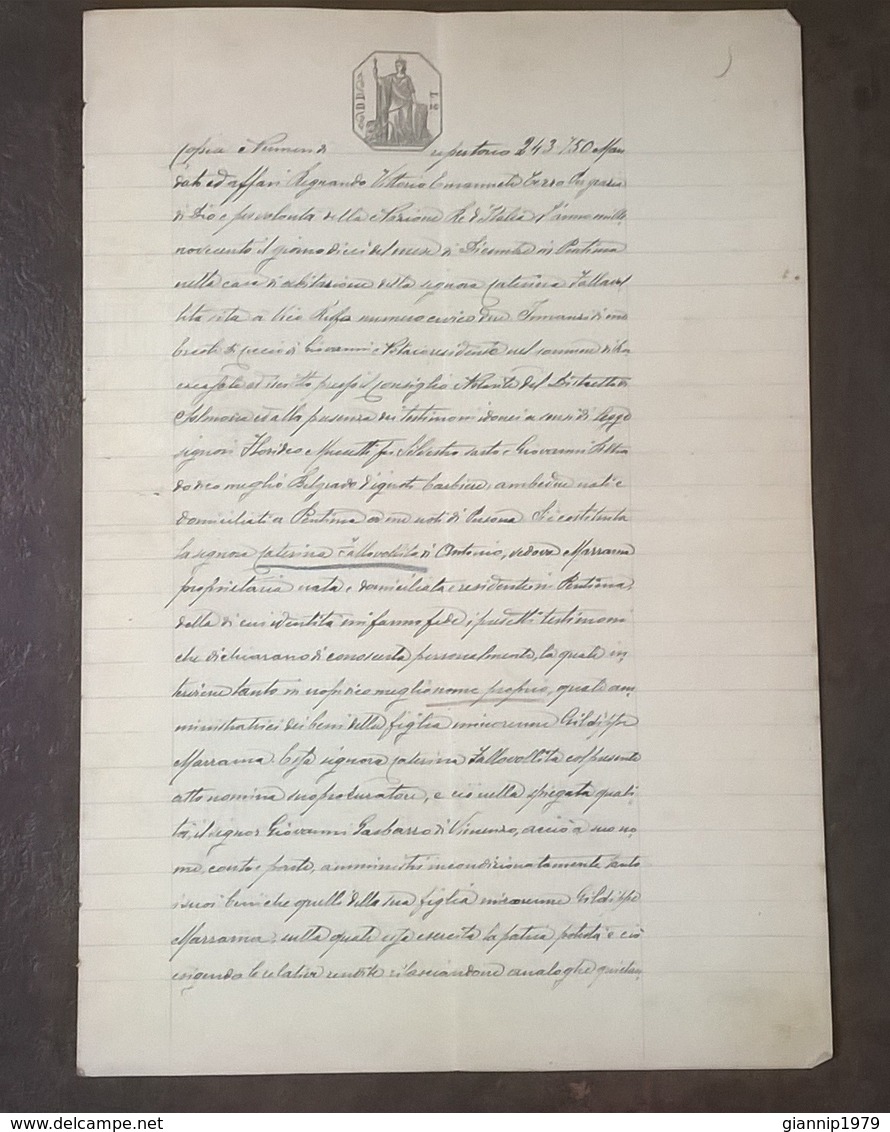 Copia Numeri di repertorio 243-750 Man
dato ad affari Regnando Vittorio Emanuele Terzo Per grazia
di Dio e per volontà della Nazione Re d'Italia L'anno mille
novecento il giorno dieci del mese di Dicembre in Pentima
nella casa di abitazione della signora Caterina Fallavol
lita sita a Vico numero civico due Innanzi di me
di Giovanni Notaio residente nel comune di
ed iscritto presso il Consiglio Notarile del Distretto di
Solmona ed alla presenza dei testimoni idonei a sensi di legge
signori Florideo fu Silvestro sarto e Giovanni
do o meglio Belgrado d'ignoti barbiere, ambedue nati e
domiciliati a Pentima a me noti di Persona Si è costituita
la signora Caterina Fallavollita di Antonio, vedova Marrama
proprietaria nata e domiciliata e residente in Pentima,
della di cui identità mi fanno fede i predetti testimoni
che dichiarano di conoscerla personalmente, la quale in
terviene tanto in proprio o meglio nome proprio, quale am
ministratrice dei beni della figlia minorenne Gildippe
Marrama. Essa signora Caterina Fallavollita col presente
atto nomina suo procuratore, e ciò nella spiegata quali
tà, il signor Giovanni Gasbarro di Vincenzo, acciò a suo no
me, conto e parte, amministri incondizionatamente tanto
i suoi beni che quelli della sua figlia minorenne Gildippe
Marrama, sulla quale essa esercita la patria potestà e ciò
esigendo le relative rendite rilasciandone analoghe quietan
delcampe.net
giannip1979